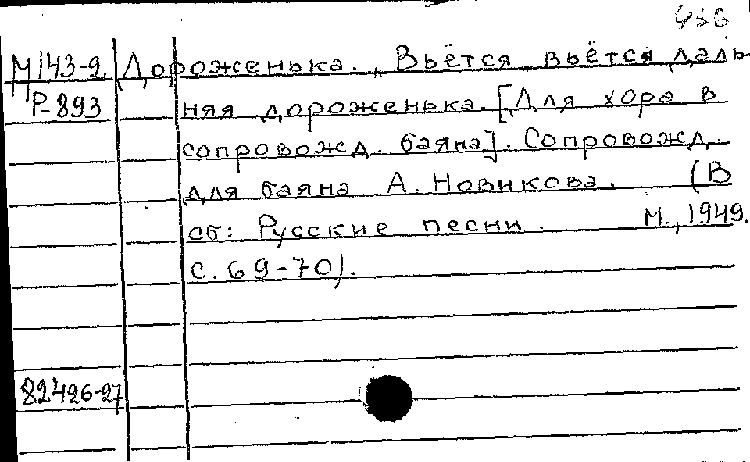 М143-2 Дороженька. „Вьётся вьётся даль-
Р-893 няя дороженька. [Для хора в
сопровожд. баяна]. Сопровожд.
для баяна А. Новикова. (В
сб: Русские песни. М., 1949.
с. 69-70).
82426-27